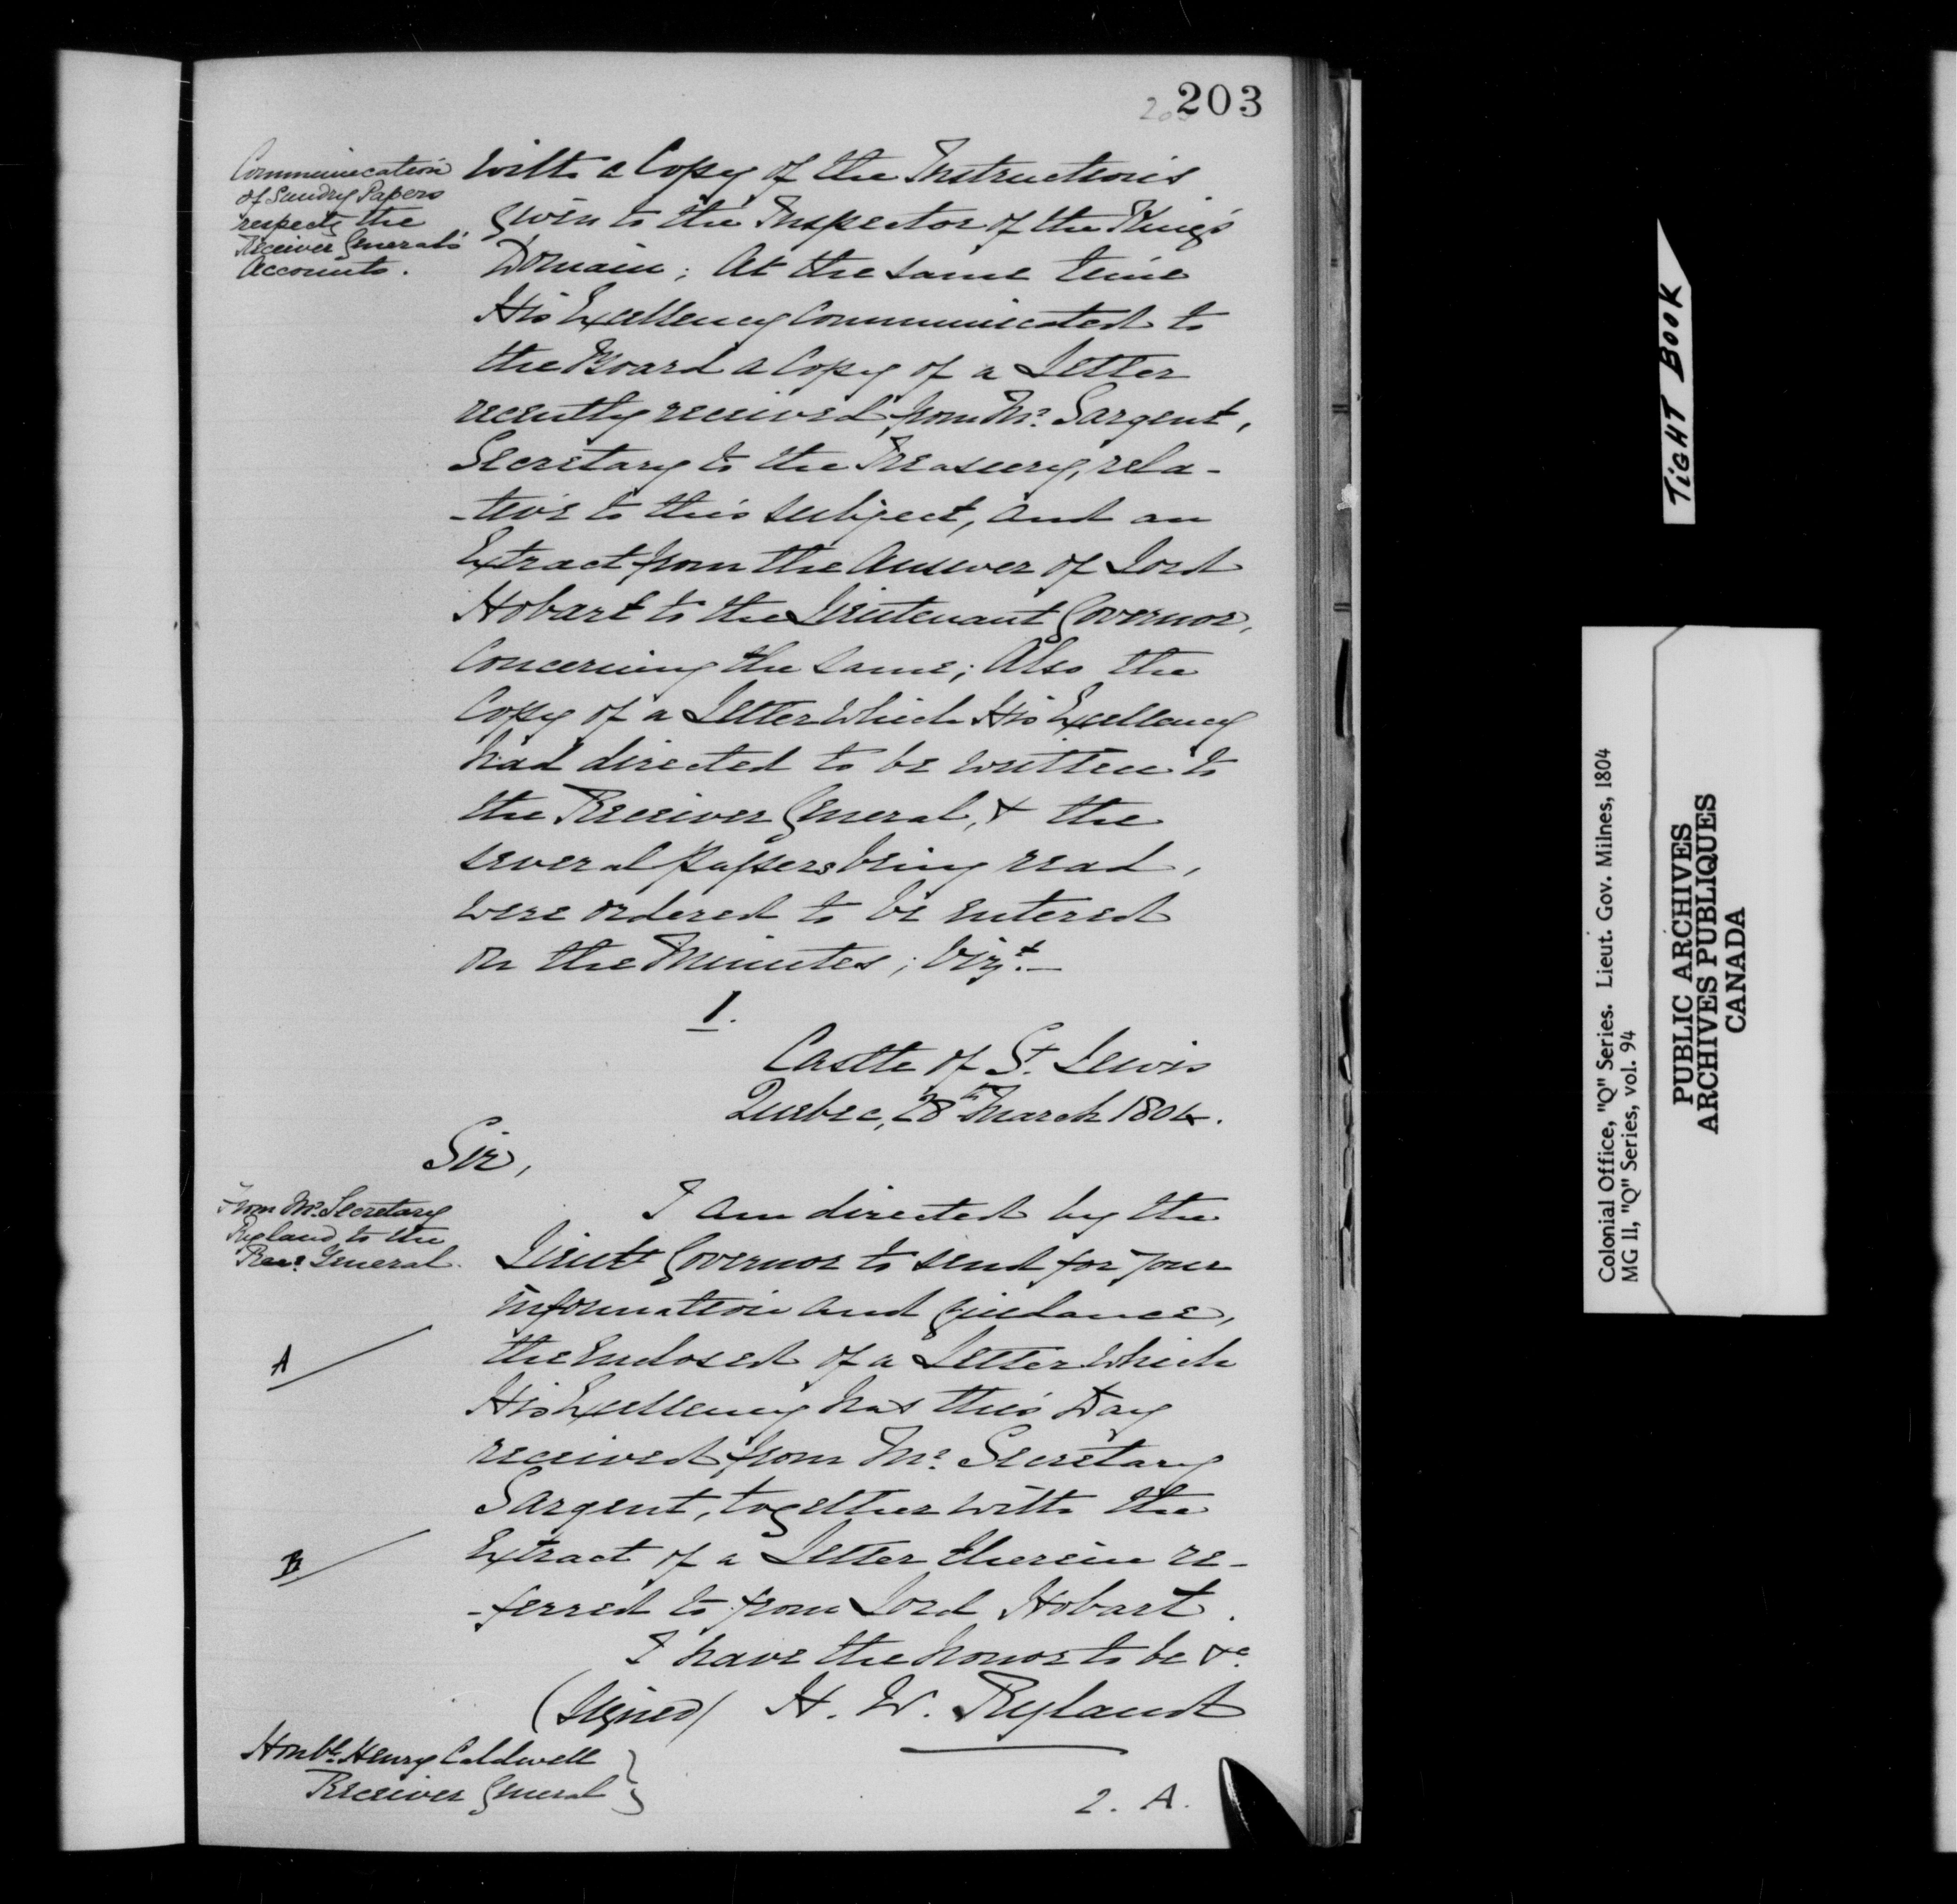 203
203
Communication
of Sundry Papers
respectg the
Receiver General's
Accounts.
with a Copy of the Instructions
given to the Inspector of the King's
Domain; At the same time
His Excellency communicated to
the Board a Copy of a Letter
recently received from Mr. Sargent,
Secretary to the Treasury, rela-
-tive to this subject, and an
Extract from the Answer of Lord
Hobart to the Lieutenant Governor,
concerning the same; Also the
Copy of a Letter which His Excellency
had directed to be written to
the Receiver General, & the
several Papers being read,
were ordered to be entered
on the Minutes; Vizt.—
1.
Castle of St. Lewis
Quebec, 28th March 1804.
Sir,
From Mr. Secretary
Ryland to the
Recr. General.
I am directed by the
Lieut Governor to send for your
information and guidance,
A
the enclosed of a Letter which
His Excellency has this Day
received from Mr. Secretary
Sargent, together with the
B
Extract of a Letter therein re-
-ferred to from Lord Hobart.
I have the honor to be &c.
(signed) H. W. Ryland
Honble. Henry Caldwell
Receiver General
2. A.
TiGHT BOOK
Colonial Office, "Q" Series. Lieut. Gov. Milnes, 1804
MG 11, "Q" Series, vol. 94
PUBLIC ARCHIVES
ARCHIVES PUBLIQUES
CANADA